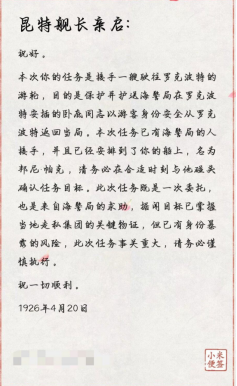 昆特舰长亲启:
祝好。
本次你的任务是接手一艘驶往罗克波特的
游轮，目的是保护并护送海警局在罗克波
特安插的卧底间谍以游客身份安全从罗克
波特返回当局。本次任务已有海警局的人
接手，并且已经安排到了你的船上，名为
邦尼·帕克，请务必在合适时刻与他碰头
确认任务目标。此次任务既是一次委托，
也是来自海警局的求助，据闻目标已掌握
当地走私集团的关键物证，但已有身份暴
露的风险，此次任务事关重大，请务必谨
慎执行。
祝一切顺利。
1926年4月20日
小米
便签